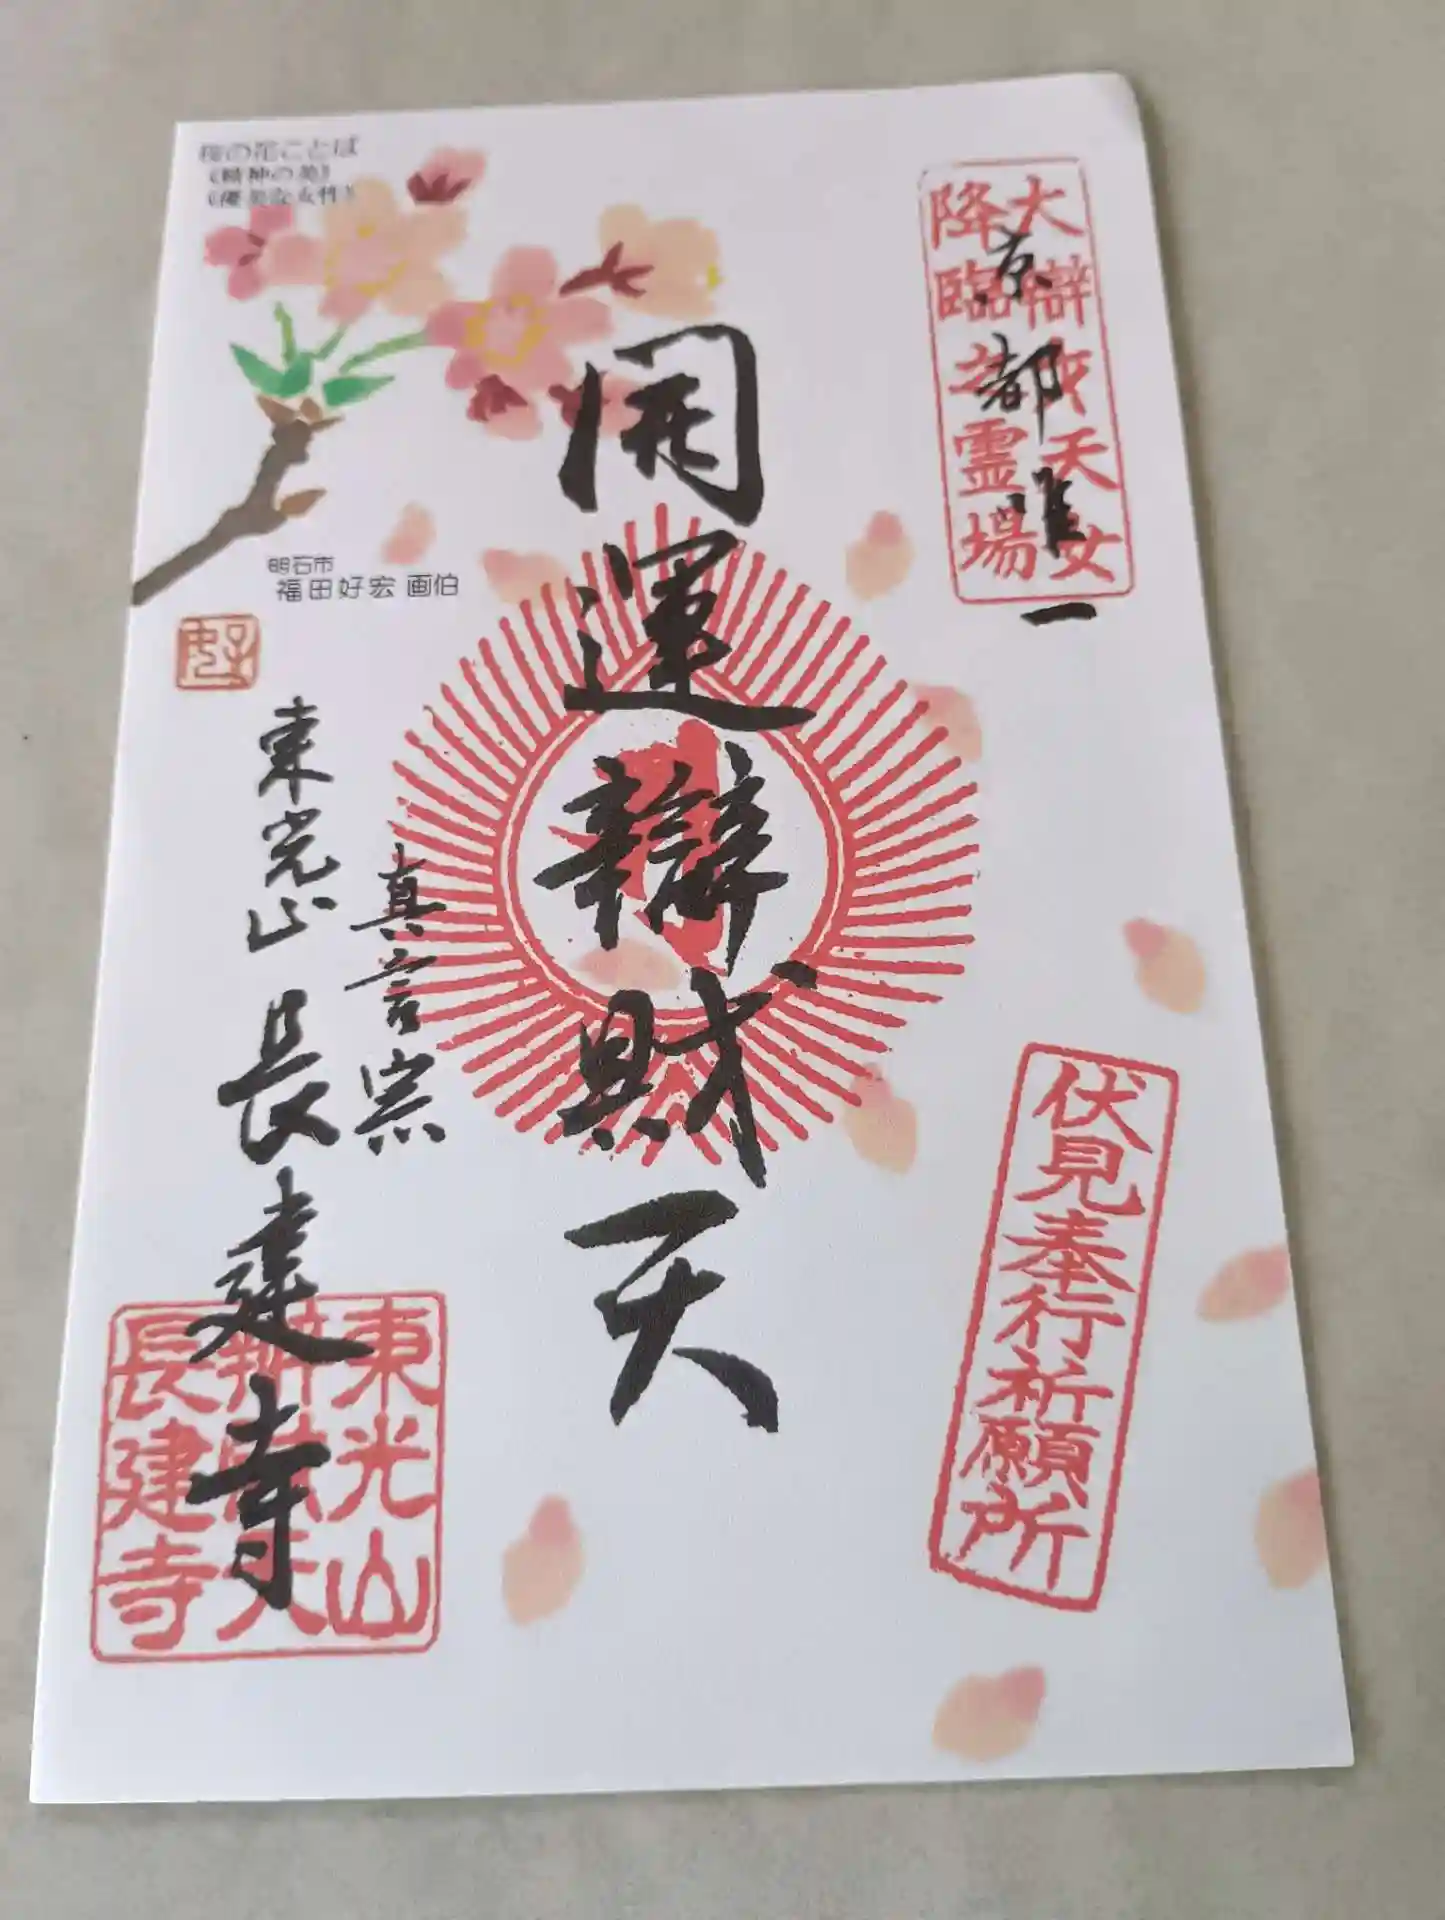 桜の花ことば
《精神の美》
《優美な女性》
明石市
福田好宏 画伯
大辯財天女
降臨之霊場
京都唯一
開運辯財天
伏見奉行祈願所
真言宗
東光山 長建寺
東光山
辯財天
長建寺
好